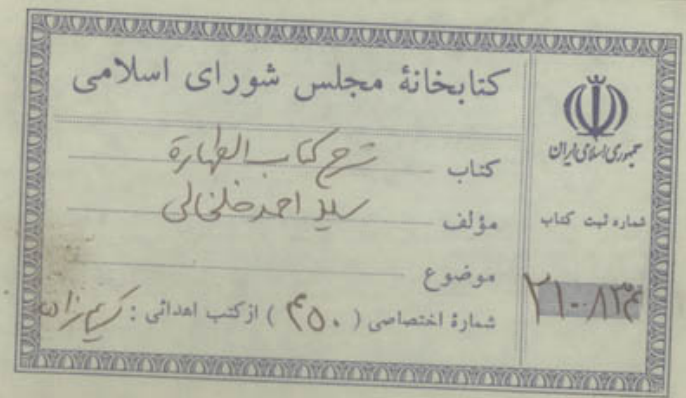 کتابخانهٔ مجلس شورای اسلامی
کتاب شرح کتاب الطهارة
مؤلف سید احمد خلخالی
موضوع
شمارهٔ اختصاصی ( ۴۵۰ ) از کتب اهدائی :
جمهوری اسلامی ایران
شماره ثبت کتاب
۲۱۰۸۳۴